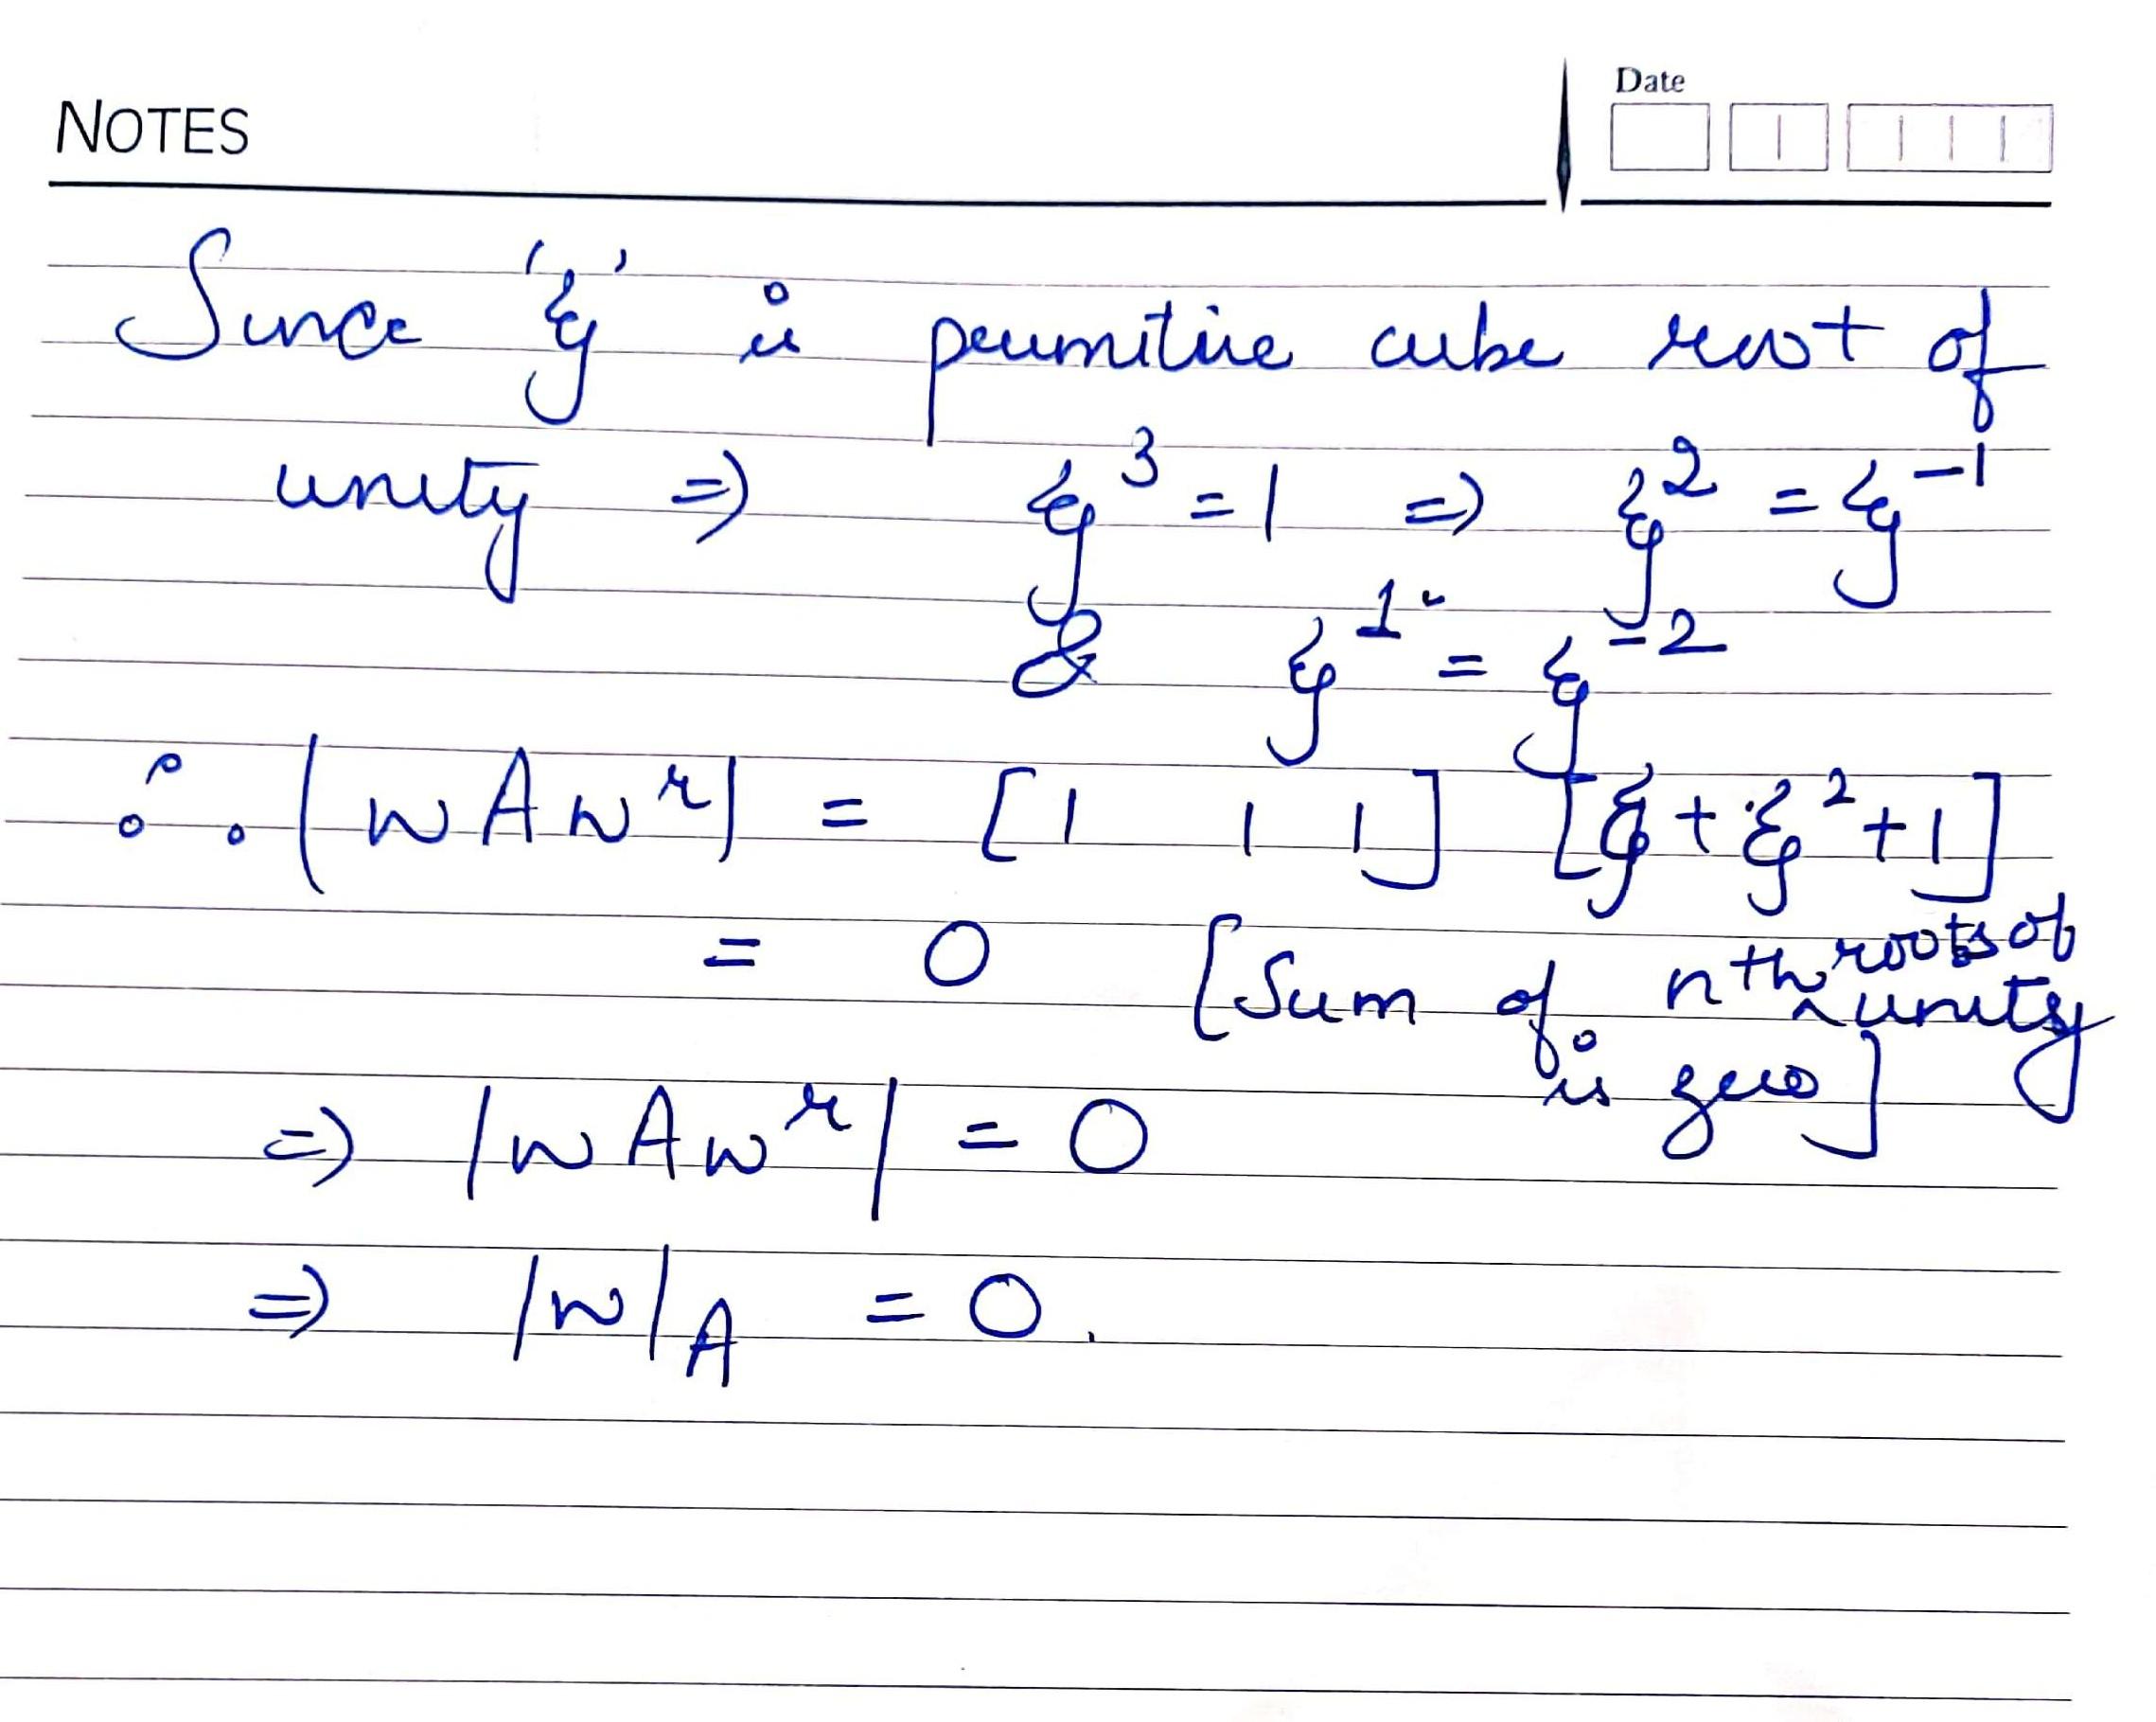 NOTES
Date
Since 'ξ' is primitive cube root of
unity ⇒ ξ³ = 1 ⇒ ξ² = ξ⁻¹
& ξ¹ = ξ⁻²
∴ |wAwʳ| = [1 1 1] [ξ + ξ² + 1]
= 0 [Sum of nth roots of unity
is zero]
⇒ |wAwʳ| = 0
⇒ |w|_A = 0.